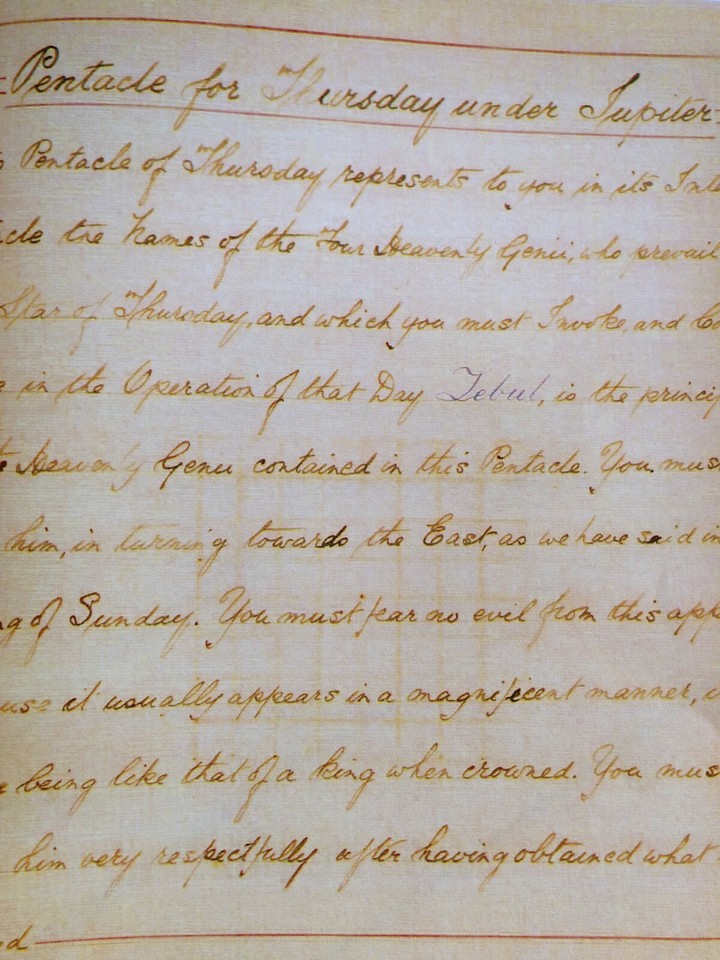 Pentacle for Thursday under Jupiter
Pentacle of Thursday represents to you in its Inte
cle the Names of the Four Heavenly Genii, who prevail
Star of Thursday, and which you must Invoke, and Co
e in the Operation of that Day Zebul, is the princip
e Heavenly Genii contained in this Pentacle. You mus
him, in turning towards the East, as we have said in
g of Sunday. You must fear no evil from this app
use it usually appears in a magnificent manner,
being like that of a king when crowned. You mus
him very respectfully after having obtained what
d